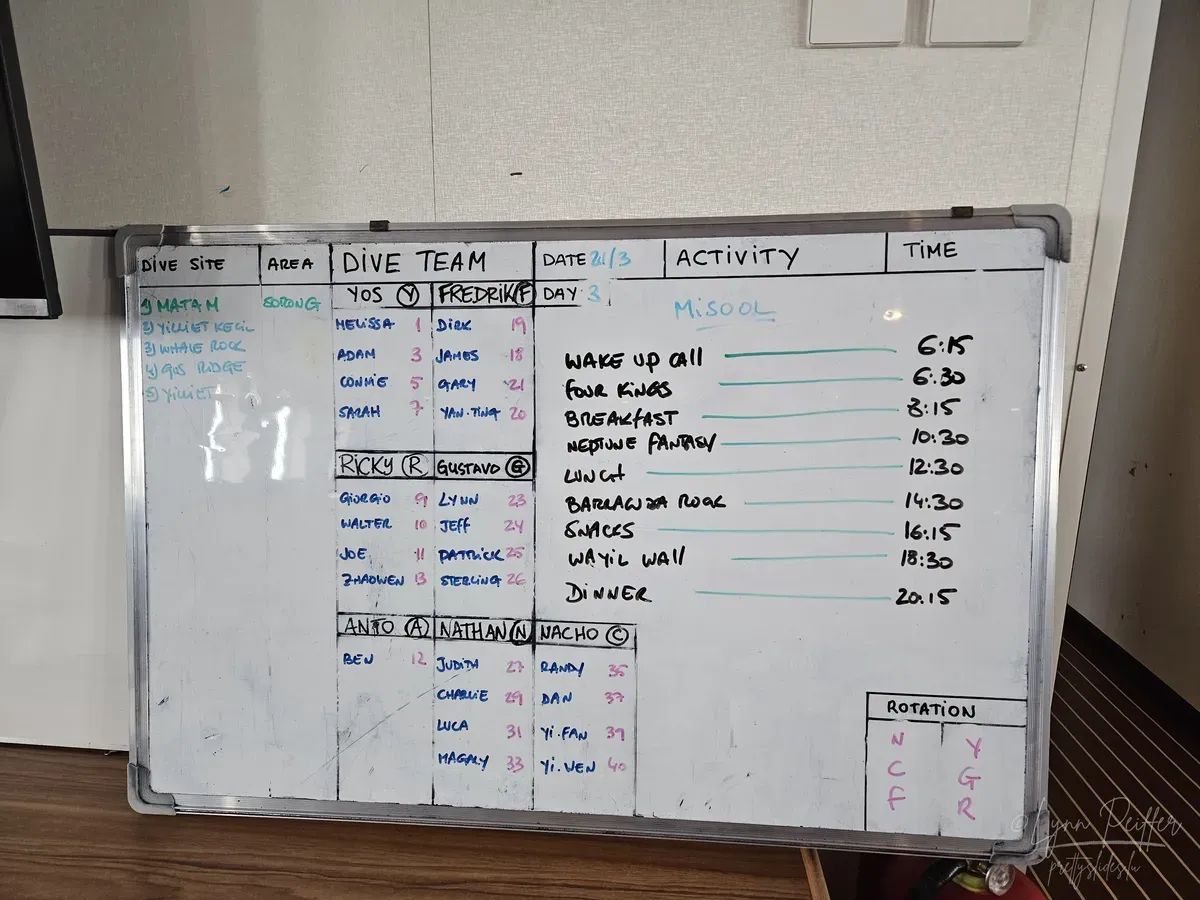 DIVE SITE
AREA
DIVE TEAM
DATE 21/3
ACTIVITY
TIME
1) MATAM SORONG
2) YILLIET KECIL
3) WHALE ROCK
4) GUS RIDGE
5) YILLIET
YOS Y
MELISSA 1
ADAM 3
CONNIE 5
SARAH 7
FREDRIK F
DIRK 19
JAMES 18
GARY 21
YAN-TING 20
RICKY R
GIORGIO 9
WALTER 10
JOE 11
ZHAOWEN 13
GUSTAVO G
LYNN 23
JEFF 24
PATTRICK 25
STERLING 26
ANTO A
BEN 12
NATHAN N
JUDITH 27
CHARLIE 29
LUCA 31
MAGALY 33
NACHO C
RANDY 35
DAN 37
YI-FAN 39
YI-WEN 40
DAY 3
MISOOL
WAKE UP CALL 6:15
FOUR KINGS 6:30
BREAKFAST 8:15
NEPTUNE FANTASY 10:30
LUNCH 12:30
BARRANZA ROCK 14:30
SNACKS 16:15
WAYIL WALL 18:30
DINNER 20:15
ROTATION
N Y
C G
F R
@Lynn Peiffer
prettyslides.lu